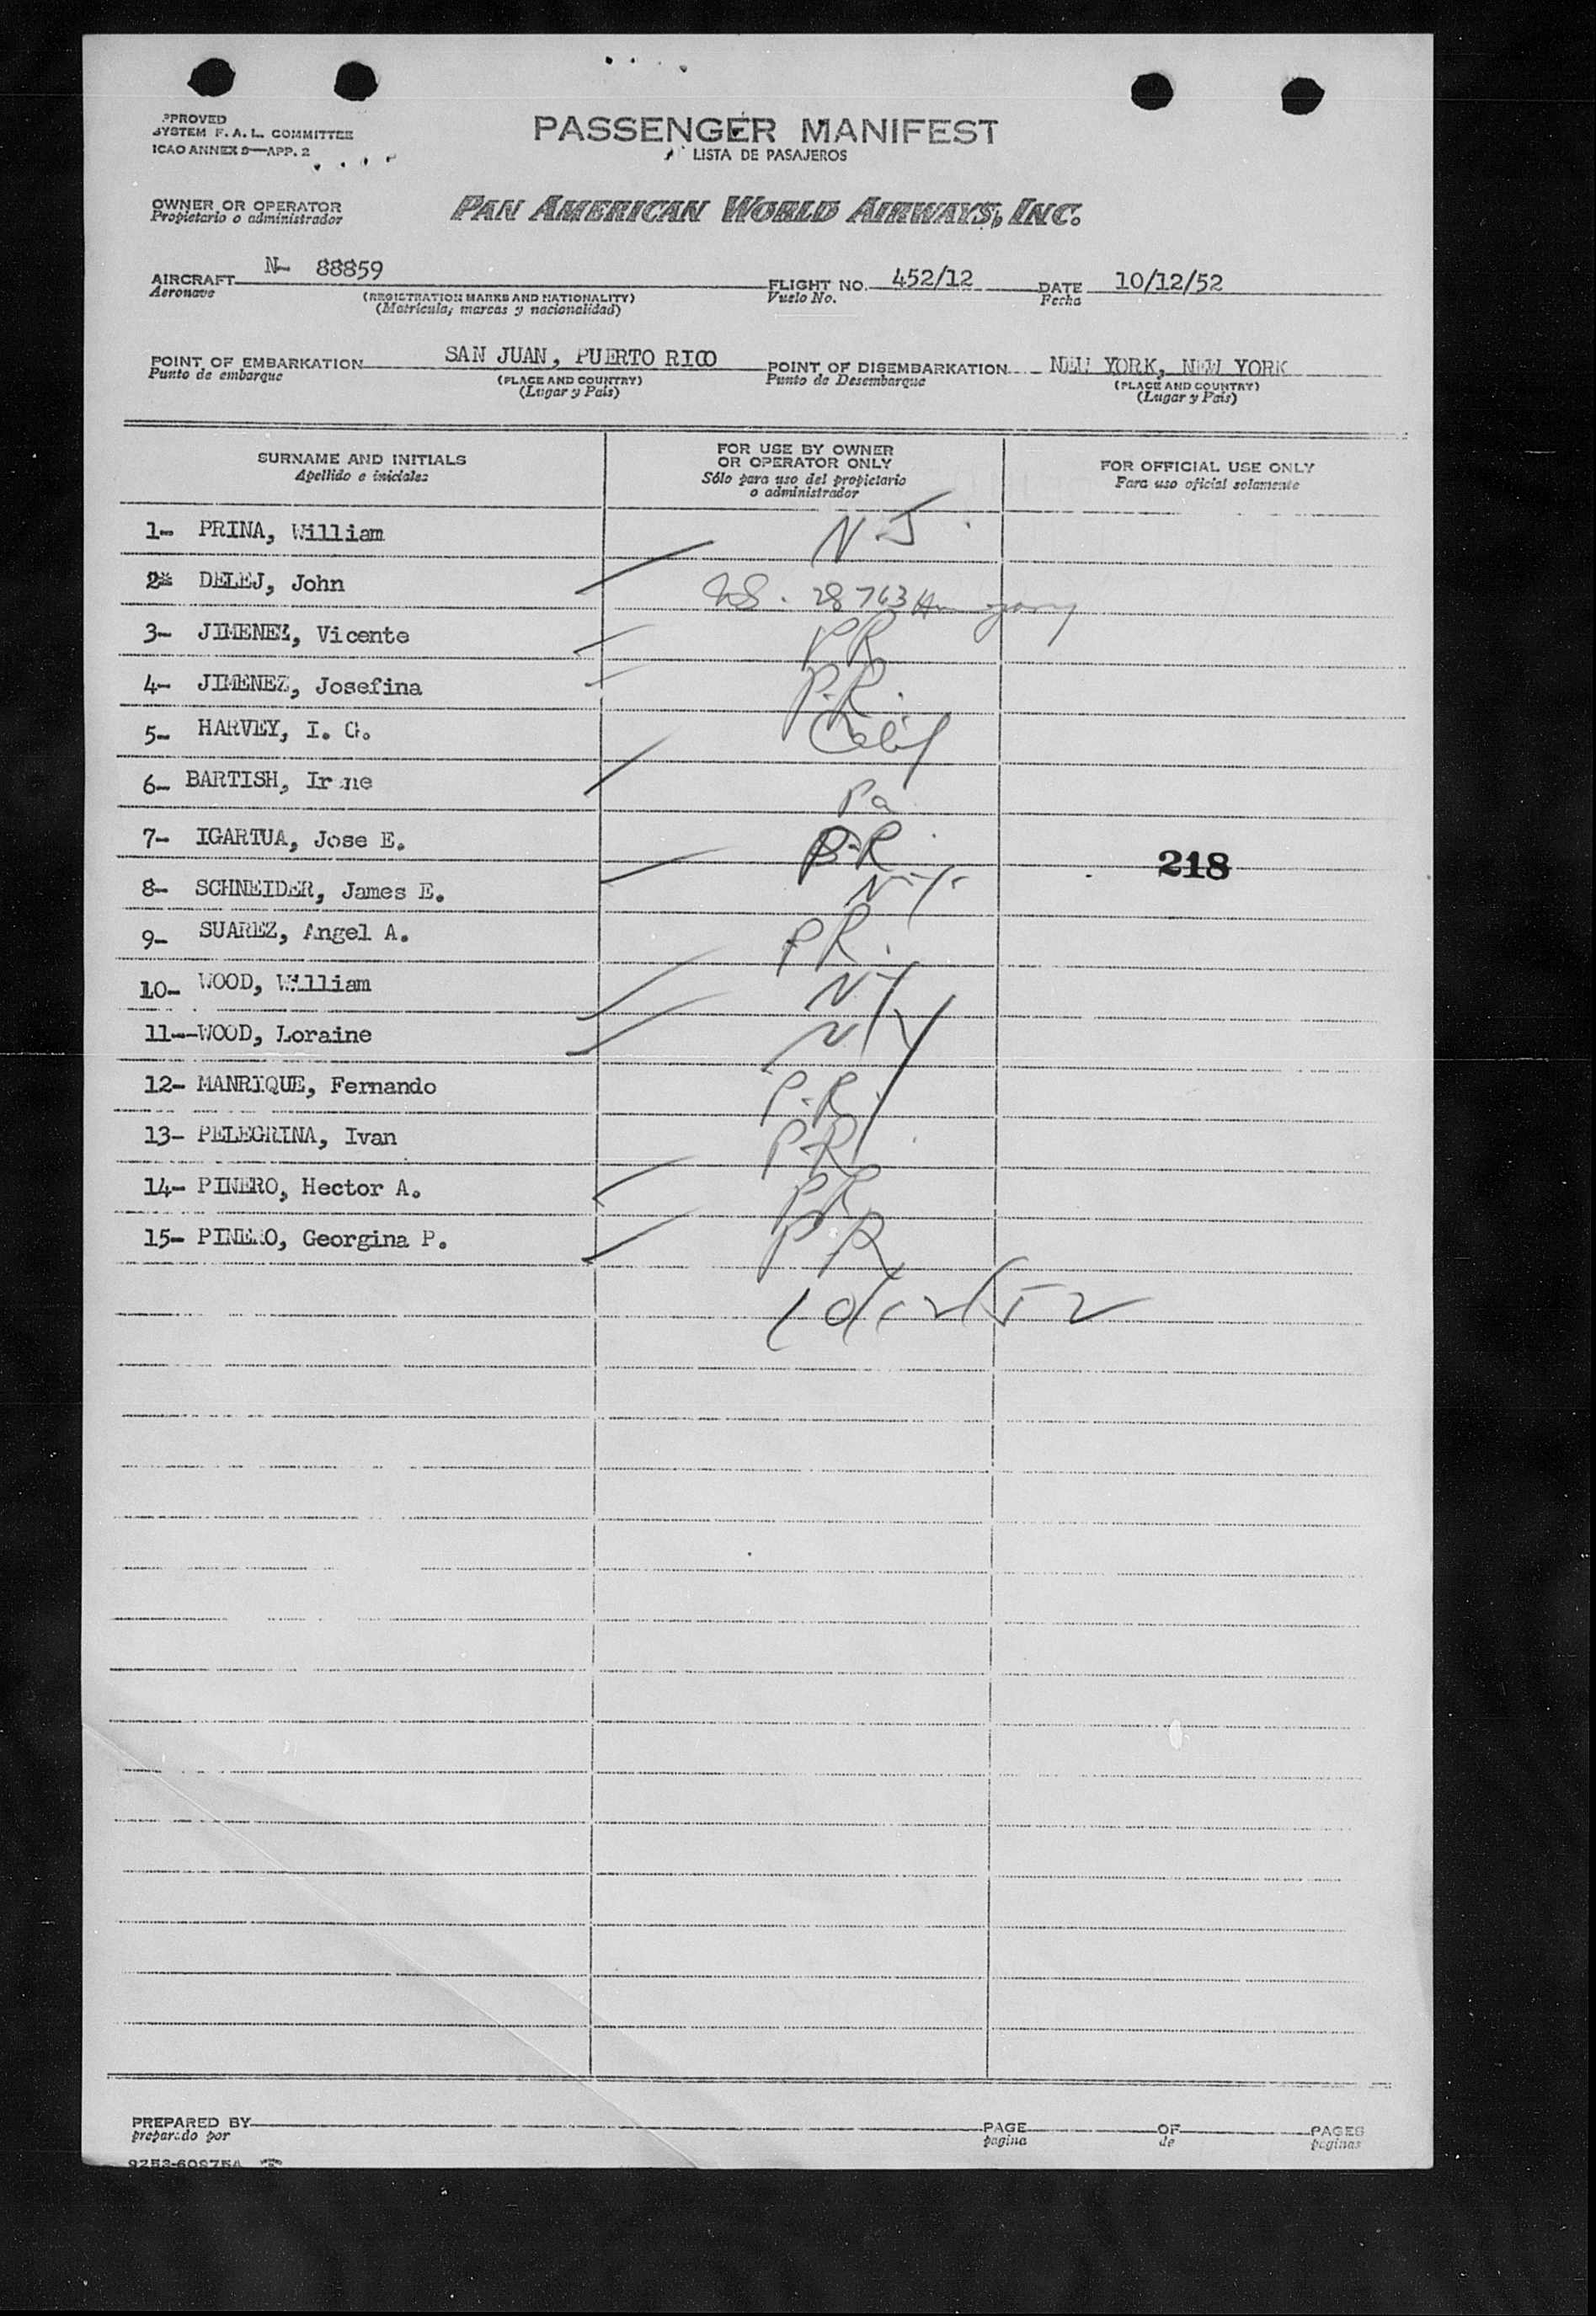 PPROVED
SYSTEM F. A. L. COMMITTEE
ICAO ANNEX 9—APP. 2
PASSENGER MANIFEST
LISTA DE PASAJEROS
OWNER OR OPERATOR
Propietario o administrador
PAN AMERICAN WORLD AIRWAYS, INC.
AIRCRAFT N- 88859
Aeronave
(REGISTRATION MARKS AND NATIONALITY)
(Matricula, marcas y nacionalidad)
FLIGHT NO. 452/12
Vuelo No.
DATE 10/12/52
Fecha
POINT OF EMBARKATION SAN JUAN, PUERTO RICO
Punto de embarque
(PLACE AND COUNTRY)
(Lugar y País)
POINT OF DISEMBARKATION NEW YORK, NEW YORK
Punto de Desembarque
(PLACE AND COUNTRY)
(Lugar y País)
SURNAME AND INITIALS
Apellido e iniciales
FOR USE BY OWNER
OR OPERATOR ONLY
Sólo para uso del propietario
o administrador
FOR OFFICIAL USE ONLY
Para uso oficial solamente
1- PRINA, William N.J.
2- DELEJ, John US. 28763 Hungary
3- JIMENEZ, Vicente PR
4- JIMENEZ, Josefina P.R.
5- HARVEY, I. G. Calif
6- BARTISH, Irene Pa
7- IGARTUA, Jose E. P-R 218
8- SCHNEIDER, James E. NY
9- SUAREZ, Angel A. PR.
10- WOOD, William NY
11--WOOD, Loraine NY
12- MANRIQUE, Fernando P.R.
13- PELEGRINA, Ivan P-R
14- PINERO, Hector A. PR
15- PINERO, Georgina P. PR
10/12/52
PREPARED BY
preparado por
PAGE
pagina
OF
de
PAGES
paginas